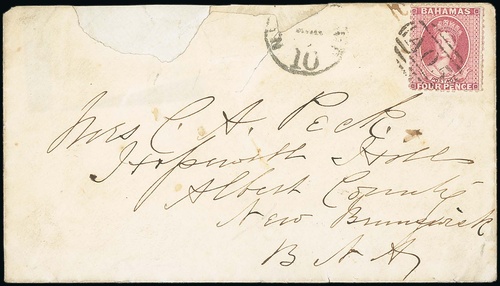 BAHAMAS
FOUR PENCE
10
Mrs C. A. Peck
Hopewell Hill
Albert County
New Brunswick
B N A